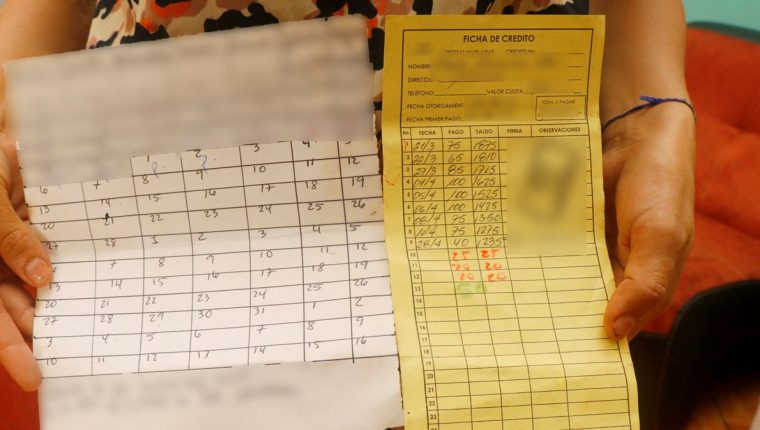 1 2 3 4 5
6 7 8 9 10 11 12
13 14 15 16 17 18 19
20 21 22 23 24 25 26
27 28 1 2 3 4 5
6 7 8 9 10 11 12
13 14 15 16 17 18 19
20 21 22 23 24 25 26
27 28 29 30 31 1 2
3 4 5 6 7 8 9
10 11 12 13 14 15 16
FICHA DE CREDITO
CREDITO No.
NOMBRE
DIRECCI
TELÉFONO VALOR CUOTA:
FECHA OTORGAMENT TOTAL A PAGAR:
FECHA PRIMER PAGO:
No. FECHA PAGO SALDO FIRMA OBSERVACIONES
1 21/3 75 1875
2 65 1810
3 85 1725
4 04/4 100 1625
5 05/4 100 1525
6 100 1425
7 08/4 75 1350
8 14/4 75 1275
9 28/4 40 1235
10 25 25
11 20 20
12 20 20
13
14
15
16
17
18
19
20
21
22